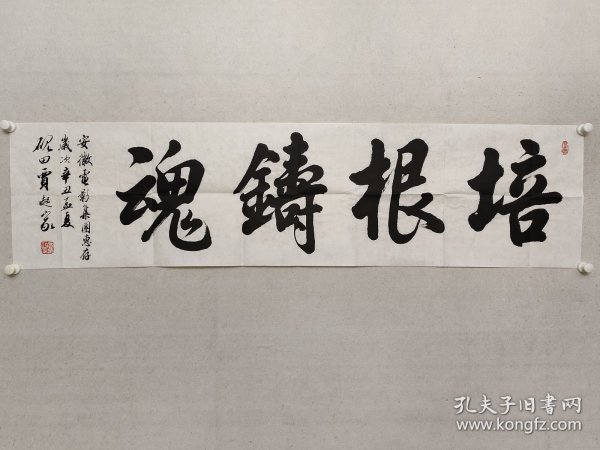 培根鑄魂
安徽電影集團惠存
歲次辛丑孟夏
砚田賈起家
孔夫子旧書网
www.kongfz.com